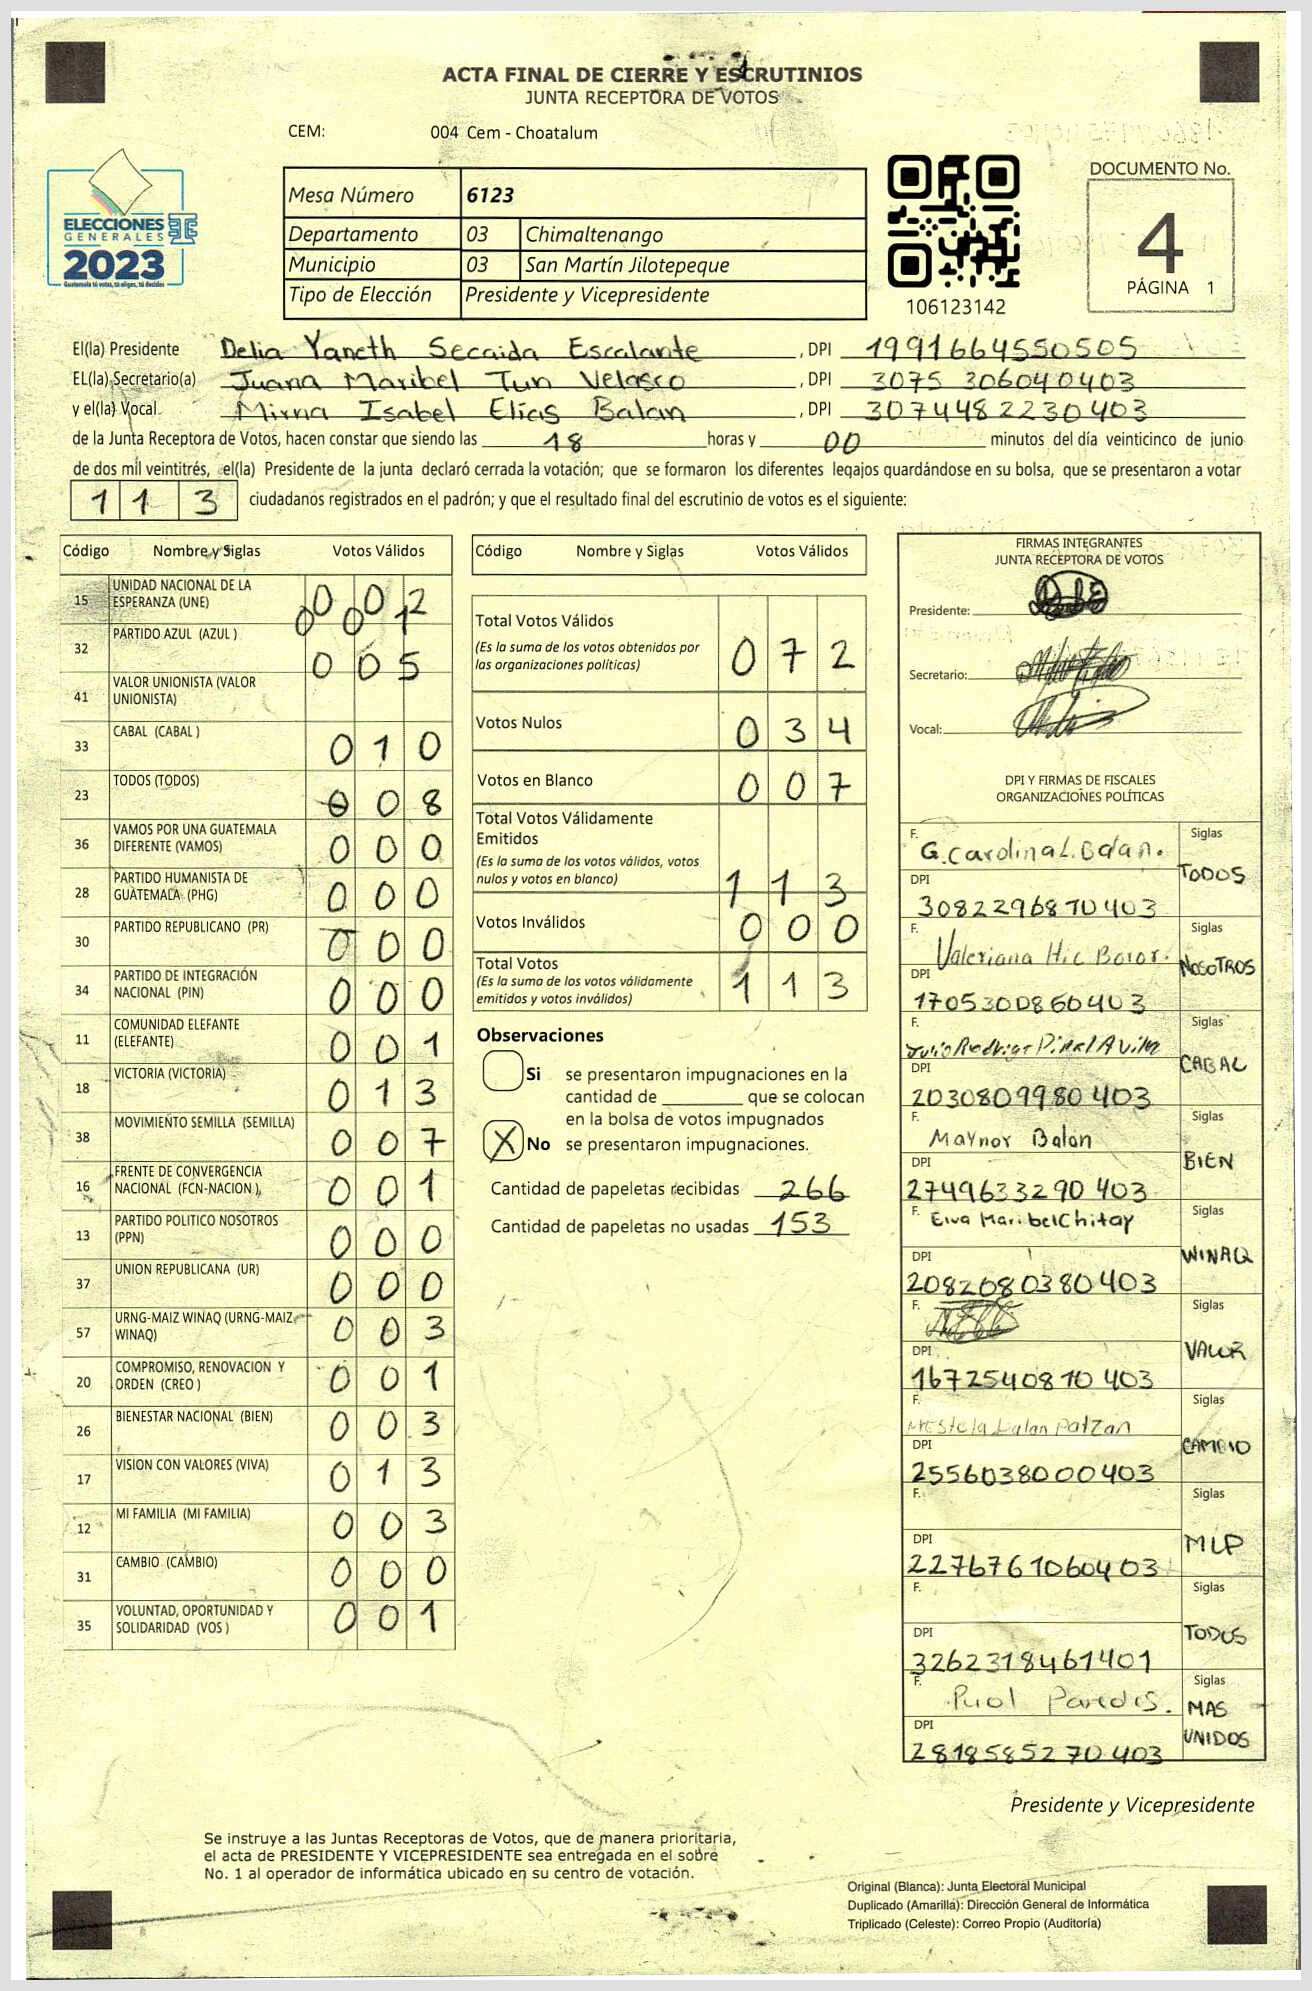 ACTA FINAL DE CIERRE Y ESCRUTINIOS
JUNTA RECEPTORA DE VOTOS
CEM: 004 Cem - Choatalum
ELECCIONES
GENERALES
2023
Guatemala tú votas, tú eliges, tú decides
Mesa Número 6123
Departamento 03 Chimaltenango
Municipio 03 San Martín Jilotepeque
Tipo de Elección Presidente y Vicepresidente
106123142
DOCUMENTO No.
4
PÁGINA 1
El(la) Presidente Delia Yaneth Secaida Escalante , DPI 1991664550505
EL(la) Secretario(a) Juana Maribel Tun Velasco , DPI 3075 306040403
y el(la) Vocal Mirna Isabel Elias Balan , DPI 3074482230403
de la Junta Receptora de Votos, hacen constar que siendo las 18 horas y 00 minutos del día veinticinco de junio
de dos mil veintitrés, el(la) Presidente de la junta declaró cerrada la votación; que se formaron los diferentes legajos guardándose en su bolsa, que se presentaron a votar
113 ciudadanos registrados en el padrón; y que el resultado final del escrutinio de votos es el siguiente:
Código Nombre y Siglas Votos Válidos
15 UNIDAD NACIONAL DE LA ESPERANZA (UNE) 0 0 2
32 PARTIDO AZUL (AZUL ) 0 0 1
41 VALOR UNIONISTA (VALOR UNIONISTA) 0 0 5
33 CABAL (CABAL ) 0 1 0
23 TODOS (TODOS) 0 0 8
36 VAMOS POR UNA GUATEMALA DIFERENTE (VAMOS) 0 0 0
28 PARTIDO HUMANISTA DE GUATEMALA (PHG) 0 0 0
30 PARTIDO REPUBLICANO (PR) 0 0 0
34 PARTIDO DE INTEGRACIÓN NACIONAL (PIN) 0 0 0
11 COMUNIDAD ELEFANTE (ELEFANTE) 0 0 1
18 VICTORIA (VICTORIA) 0 1 3
38 MOVIMIENTO SEMILLA (SEMILLA) 0 0 7
16 FRENTE DE CONVERGENCIA NACIONAL (FCN-NACION ) 0 0 1
13 PARTIDO POLITICO NOSOTROS (PPN) 0 0 0
37 UNION REPUBLICANA (UR) 0 0 0
57 URNG-MAIZ WINAQ (URNG-MAIZ WINAQ) 0 0 3
20 COMPROMISO, RENOVACION Y ORDEN (CREO ) 0 0 1
26 BIENESTAR NACIONAL (BIEN) 0 0 3
17 VISION CON VALORES (VIVA) 0 1 3
12 MI FAMILIA (MI FAMILIA) 0 0 3
31 CAMBIO (CAMBIO) 0 0 0
35 VOLUNTAD, OPORTUNIDAD Y SOLIDARIDAD (VOS ) 0 0 1
Código Nombre y Siglas Votos Válidos
Total Votos Válidos
(Es la suma de los votos obtenidos por
las organizaciones políticas) 0 7 2
Votos Nulos 0 3 4
Votos en Blanco 0 0 7
Total Votos Válidamente
Emitidos
(Es la suma de los votos válidos, votos
nulos y votos en blanco) 1 1 3
Votos Inválidos 0 0 0
Total Votos
(Es la suma de los votos válidamente
emitidos y votos inválidos) 1 1 3
Observaciones
Si se presentaron impugnaciones en la
cantidad de que se colocan
en la bolsa de votos impugnados
X No se presentaron impugnaciones.
Cantidad de papeletas recibidas 266
Cantidad de papeletas no usadas 153
FIRMAS INTEGRANTES
JUNTA RECEPTORA DE VOTOS
Presidente:
Secretario:
Vocal:
DPI Y FIRMAS DE FISCALES
ORGANIZACIONES POLÍTICAS
F. G. Carolina L. Balan. Siglas TODOS
DPI 3082296870403
F. Valeriana Hic Boror. Siglas NOSOTROS
DPI 1705300860403
F. Julio Rodrigo Siglas CABAL
DPI 2030809980403
F. Maynor Balan Siglas BIEN
DPI 2749633290403
F. Elva Maribel Chitay Siglas WINAQ
DPI 2082080380403
F. Siglas VALOR
DPI 1672540810403
F. Siglas CAMBIO
DPI 2556038000403
F. Siglas MLP
DPI 2276761060403
F. Siglas TODOS
DPI 3262318461401
F. Paredes. Siglas MAS UNIDOS
DPI 2818585270403
Presidente y Vicepresidente
Se instruye a las Juntas Receptoras de Votos, que de manera prioritaria,
el acta de PRESIDENTE Y VICEPRESIDENTE sea entregada en el sobre
No. 1 al operador de informática ubicado en su centro de votación.
Original (Blanca): Junta Electoral Municipal
Duplicado (Amarilla): Dirección General de Informática
Triplicado (Celeste): Correo Propio (Auditoría)